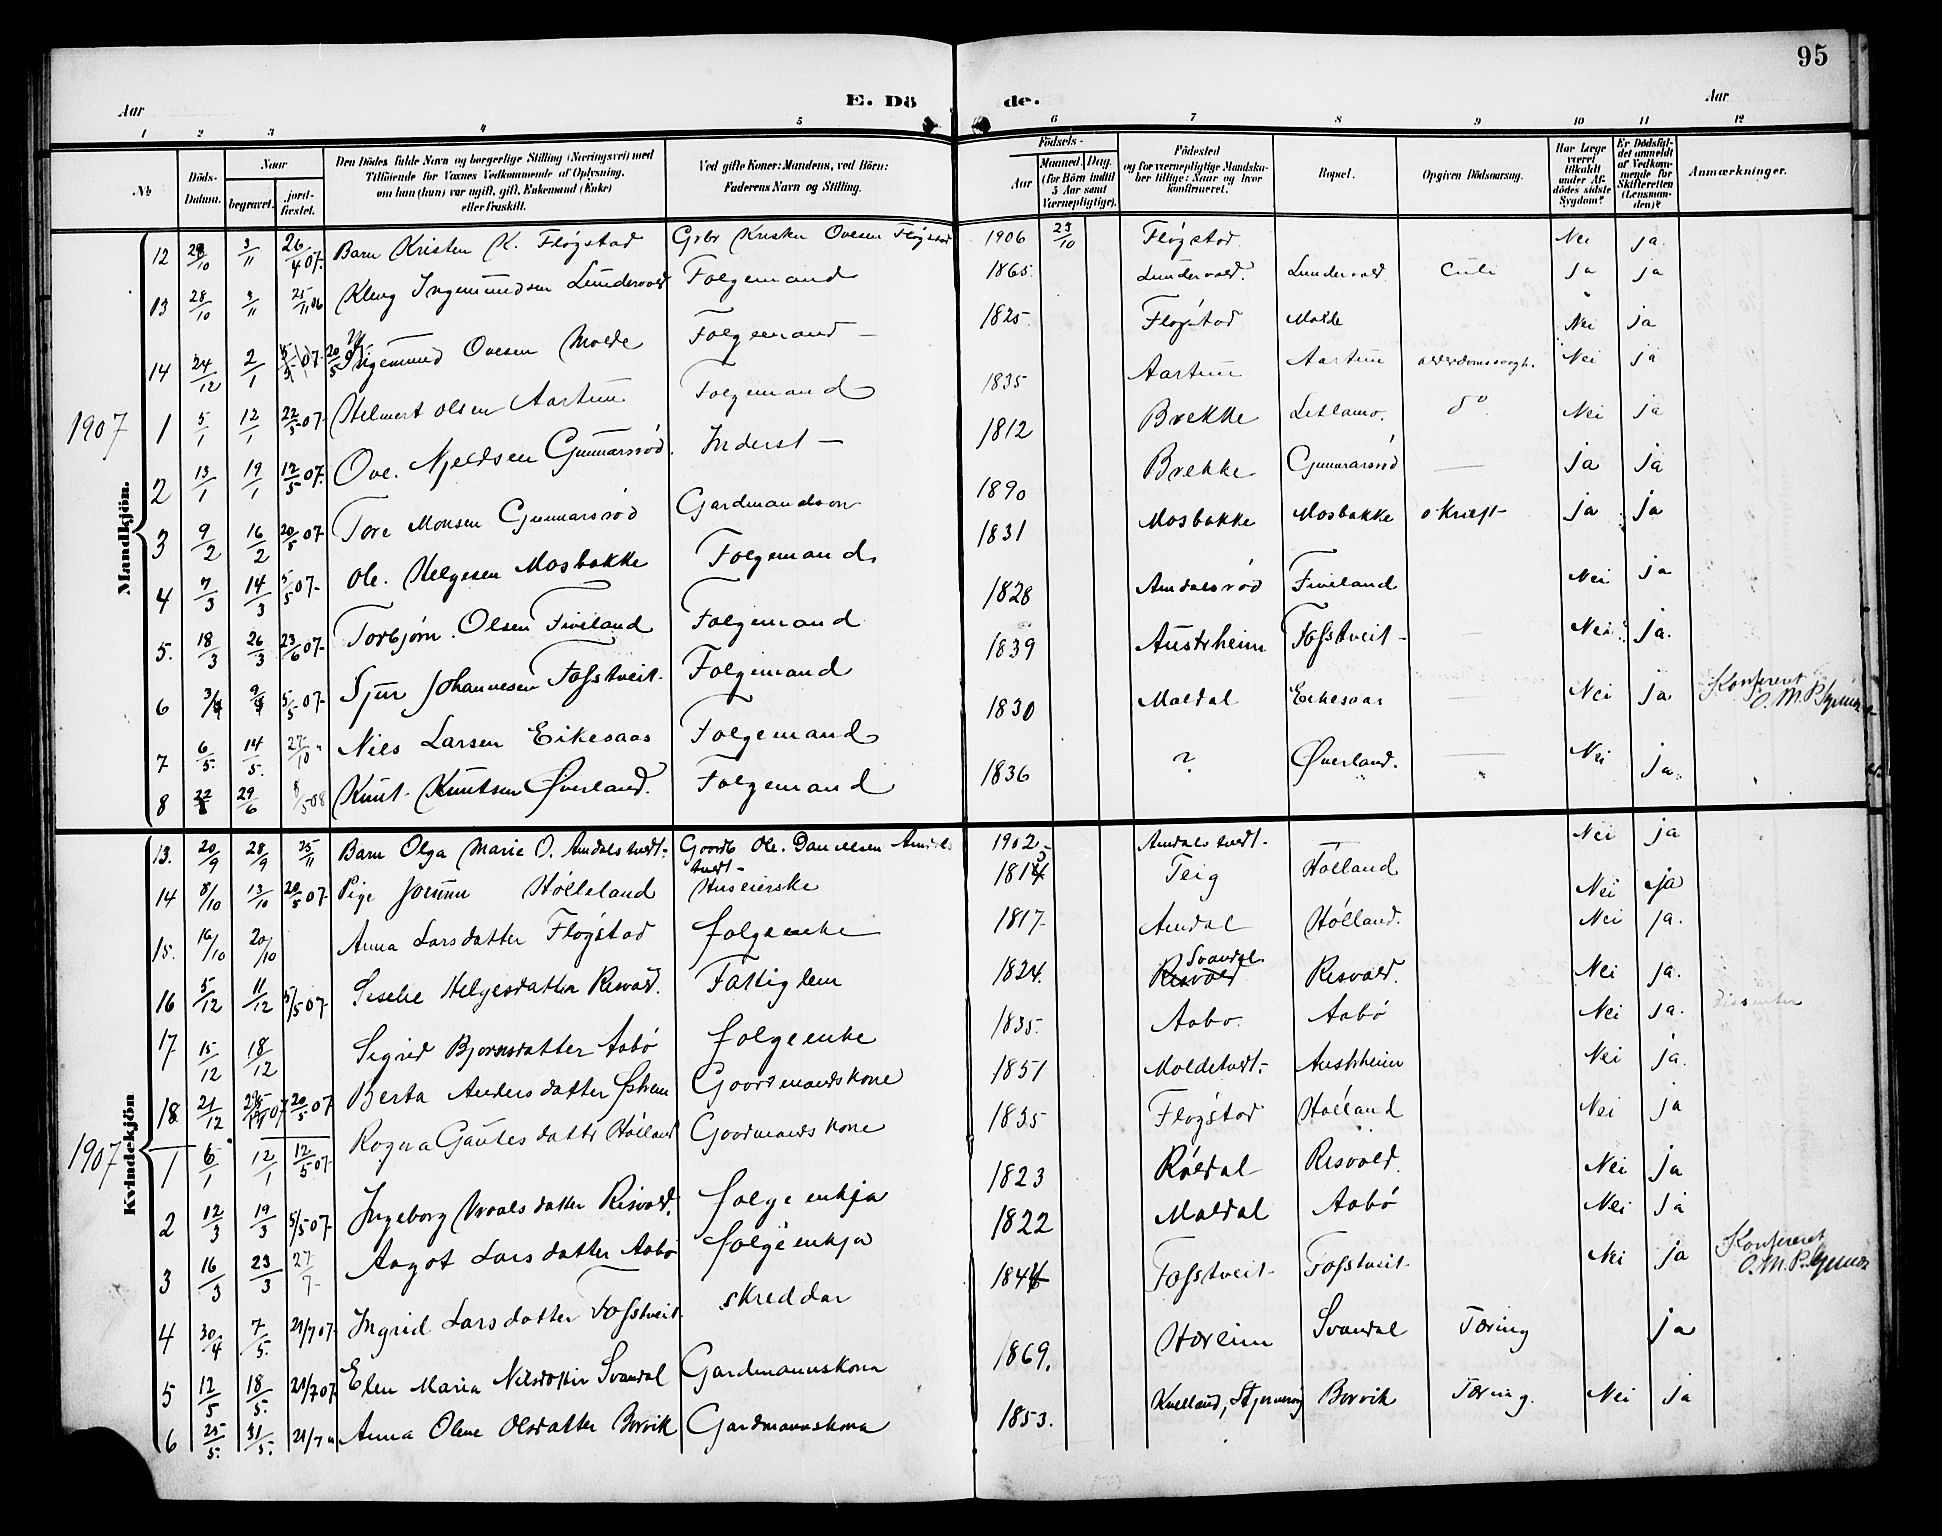 95
Aar E. Dö de. Aar
1 2 3 4 5 6 7 8 9 10 11 12
No Döds-Datum. Naar begravet. jord-fæstet. Den Dödes fulde Navn og borgerlige Stilling (Næringsvei) med Tilföiende for Voxnes Vedkommende af Oplysning, om han (hun) var ugift, gift, Enkemand (Enke) eller fraskilt. Ved gifte Koner: Mandens, ved Börn: Faderens Navn og Stilling. Födsels- Aar Maaned. Dag. (for Börn indtil 5 Aar samt Værnepligtige). Födested og for værnepligtige Mandskaber tillige: Naar og hvor konfirmeret. Bopæl. Opgiven Dödsaarsag. Har Læge været tilkaldt under Afdödes sidste Sygdom? Er Dödsfaldet anmeldt af Vedkommende for Skifteretten (Lensmanden)? Anmærkninger.
Mandkjön.
12 28/10 3/11 26/4 07. Barn Kristen K. Fløgstad Grbr Kristen Ovesen Fløgstad 1906 23/10 Fløgstad. Nei ja.
13 28/10 3/11 25/11 06 Kleng Ingemundsen Lundervold Folgemand 1865. Lundervold. Lundervold ja ja
14 24/12 2/1 07. 20/5 Ingemund Ovesen Molde Folgemand 1825. Fløgstad Molde Nei ja
1907
1 5/1 12/1 22/5 07. Helmert Olsen Aartun Folgemand 1835 Aartun Aartun Nei ja
2 13/1 19/1 12/5 07. Ove. Njeldsen Gunnarsrød. Inderst 1812 Brekke do Nei ja
3 9/2 16/2 20/5 07 Tore Monsen Gunnarsrød Gardmandson 1890 Brekke Gunnarsrød ja ja
4 7/3 14/3 5/5 07. Ole. Helgesen Mosbakke Folgemand. 1831 Mosbakke Mosbakke ja ja
5. 18/3 26/3 23/6 07. Torbjørn. Olsen Fiveland Folgemand 1828 Amdalsrød Fiveland Nei ja
6 3/4 9/4 5/5 07. Sjur Johannesen Fosstveit. Folgemand 1839 Austrheim Fosstveit Nei ja.
7 6/5. 14/5. 27/10 Niels Larsen Eikesaas Folgemand 1830 Maldal Eikesaas Nei ja Konfereret
8 22/ 29/6 8/5 08 Knut Knutsen Øverland. Folgemand 1836 ? Øverland. Nei ja.
Kvindekjön
13. 20/9 28/9 25/11 Barn Olga Marie O. Amdalstvedt. Ole. Danielsen Amdalstvedt 1902. Amdalstvedt. Nei ja
14 8/10 13/10 20/5 07. Pige Jorunn Hølleland Huseierske 181 Teig Hølland Nei ja
15. 16/10 20/10 Anna Larsdatter Fløgstad folgeenke 1817. Amdal Hølland. Nei ja.
16 5/12 11/12 5/5 07. Helgesdatter Risvold. Fattiglem 1824. Risvold Svandal Risvold. Nei ja.
17 15/12 18/12 Sigrid Bjørnsdatter Aabø folgeenke 1835. Aabo. Aabø Nei ja. dissenter
18 21/12 07 20/5 07 Berta Andersdatter Goordmandskone 1851 Moldetvedt Austrheim Nei ja.
1907
1 6/1 12/1 12/5 07. Rogna Gautesdatter Hølland Goordmandskone 1835 Fløgstad Hølland Nei ja
2 12/3 19/3 5/5 07. Ingeborg Risvold. folgeenkja 1823 Røldal Risvold. Nei ja
3 16/3 23/3 27/7 Aagot Larsdatter Aabø folgeenkja 1822 Maldal Aabø Nei ja
4 30/4 7/5. 21/7 07. Ingrid Larsdatter Fosstveit. skreddar 184 Fosstveit. Fosstveit. Nei ja Konfereret
5 12/5 18/5. 21/7 07 Elen Maria Nilsdotter Svandal Gardmannskona 1869. Hæreim Svandal Tæring ja
6 25/5. 31/5. 21/7 Anna Olene Olsdatter Borvik Gardmannskona 1853. Borvik Tæring. Nei ja